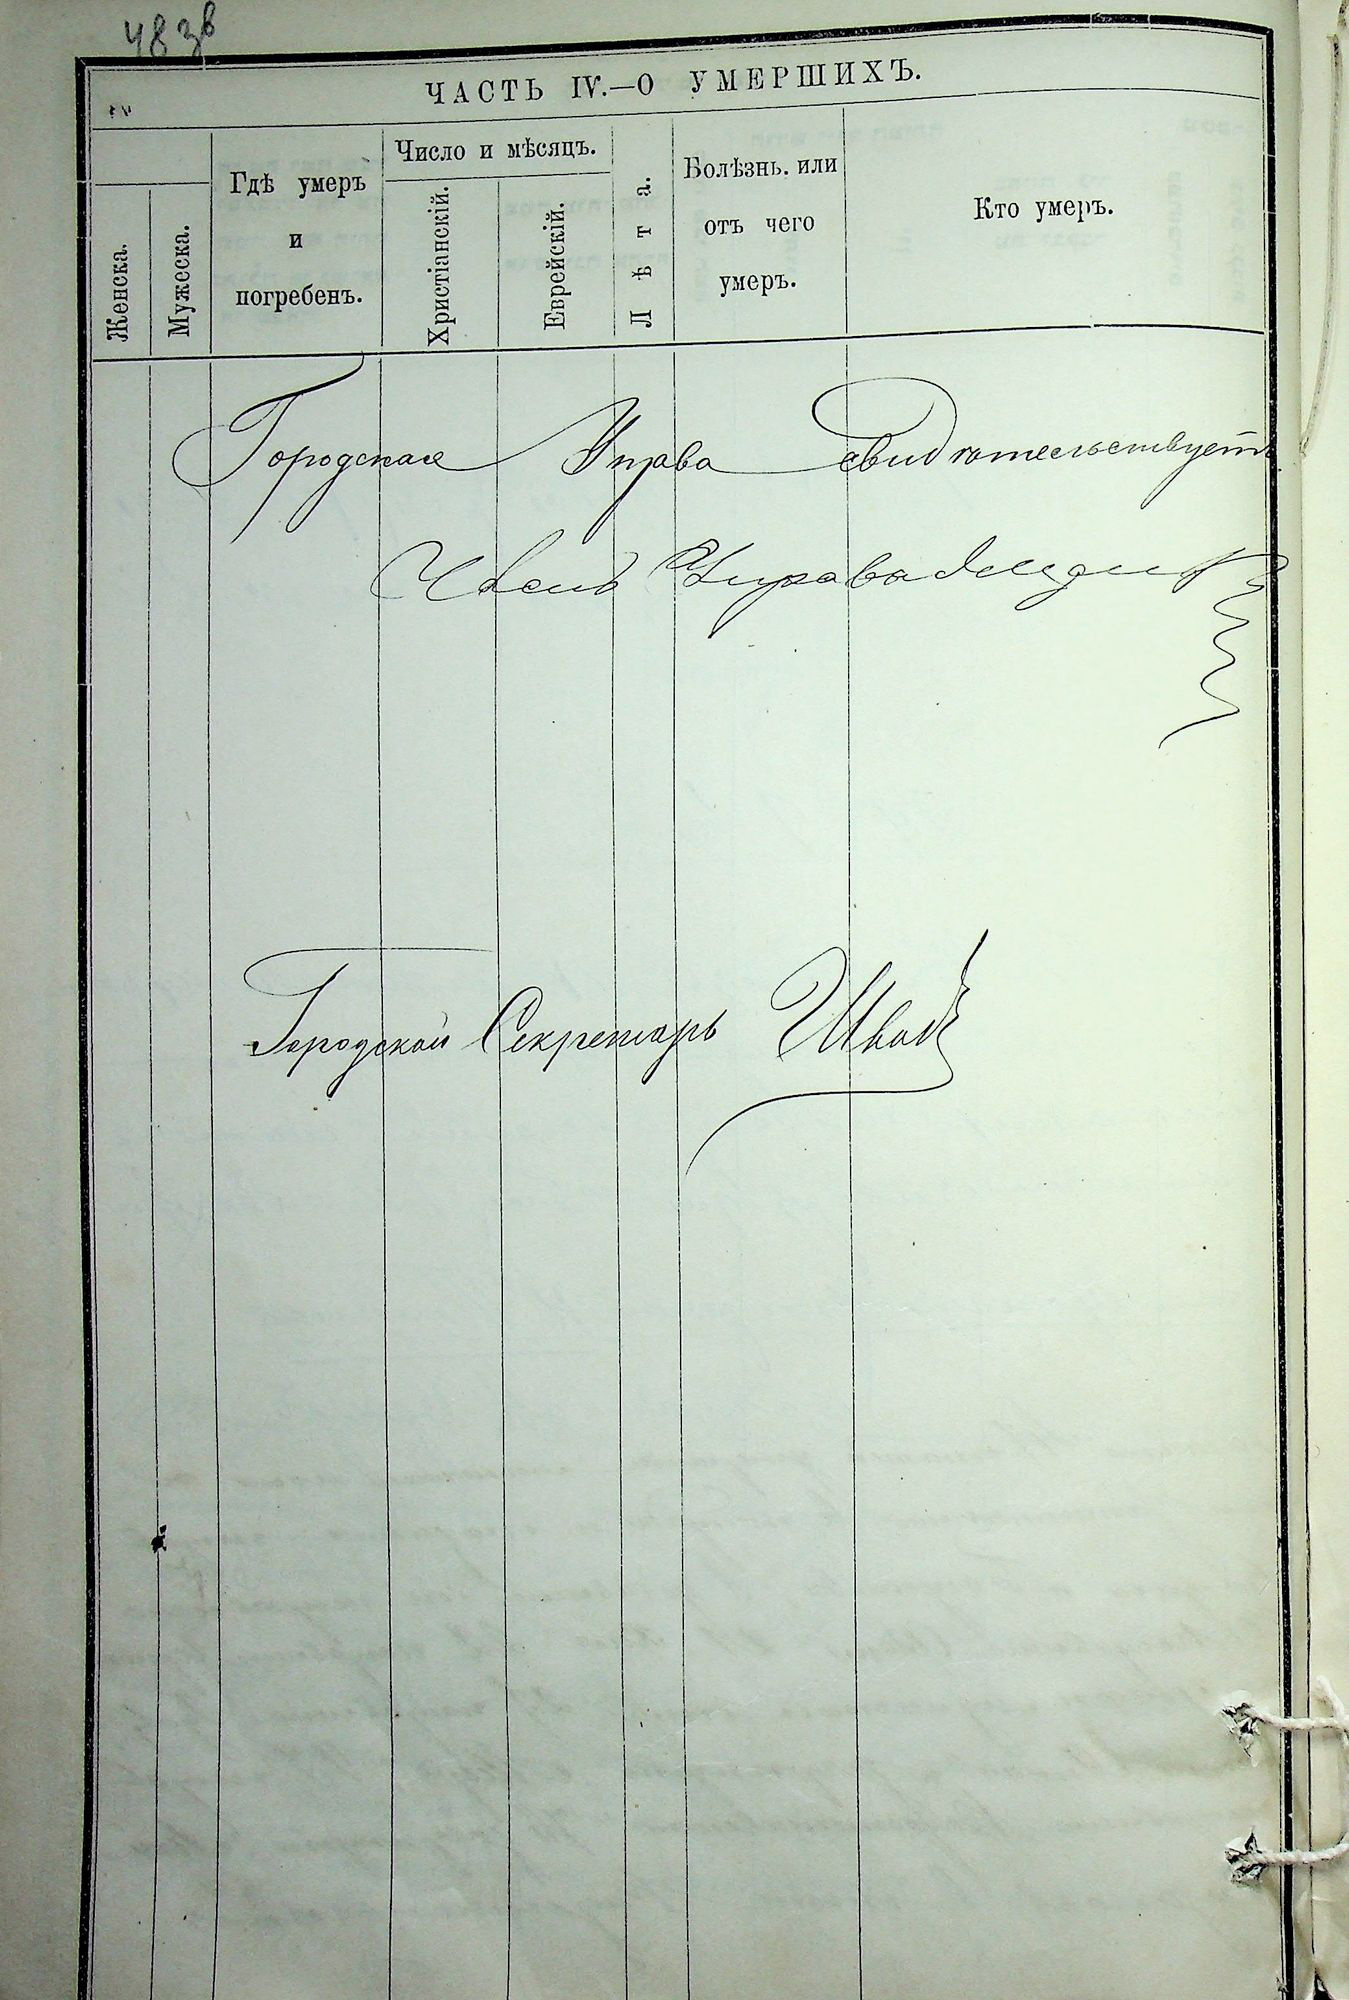 48 зв
ЧАСТЬ IV.—О УМЕРШИХЪ.
Женска.
Мужеска.
Гдѣ умеръ
и
погребенъ.
Число и мѣсяцъ.
Христіанскій.
Еврейскій.
Лѣта.
Болѣзнь. или
отъ чего
умеръ.
Кто умеръ.
Городская Управа свидѣтельствуетъ
Членъ Управы
Городской Секретарь